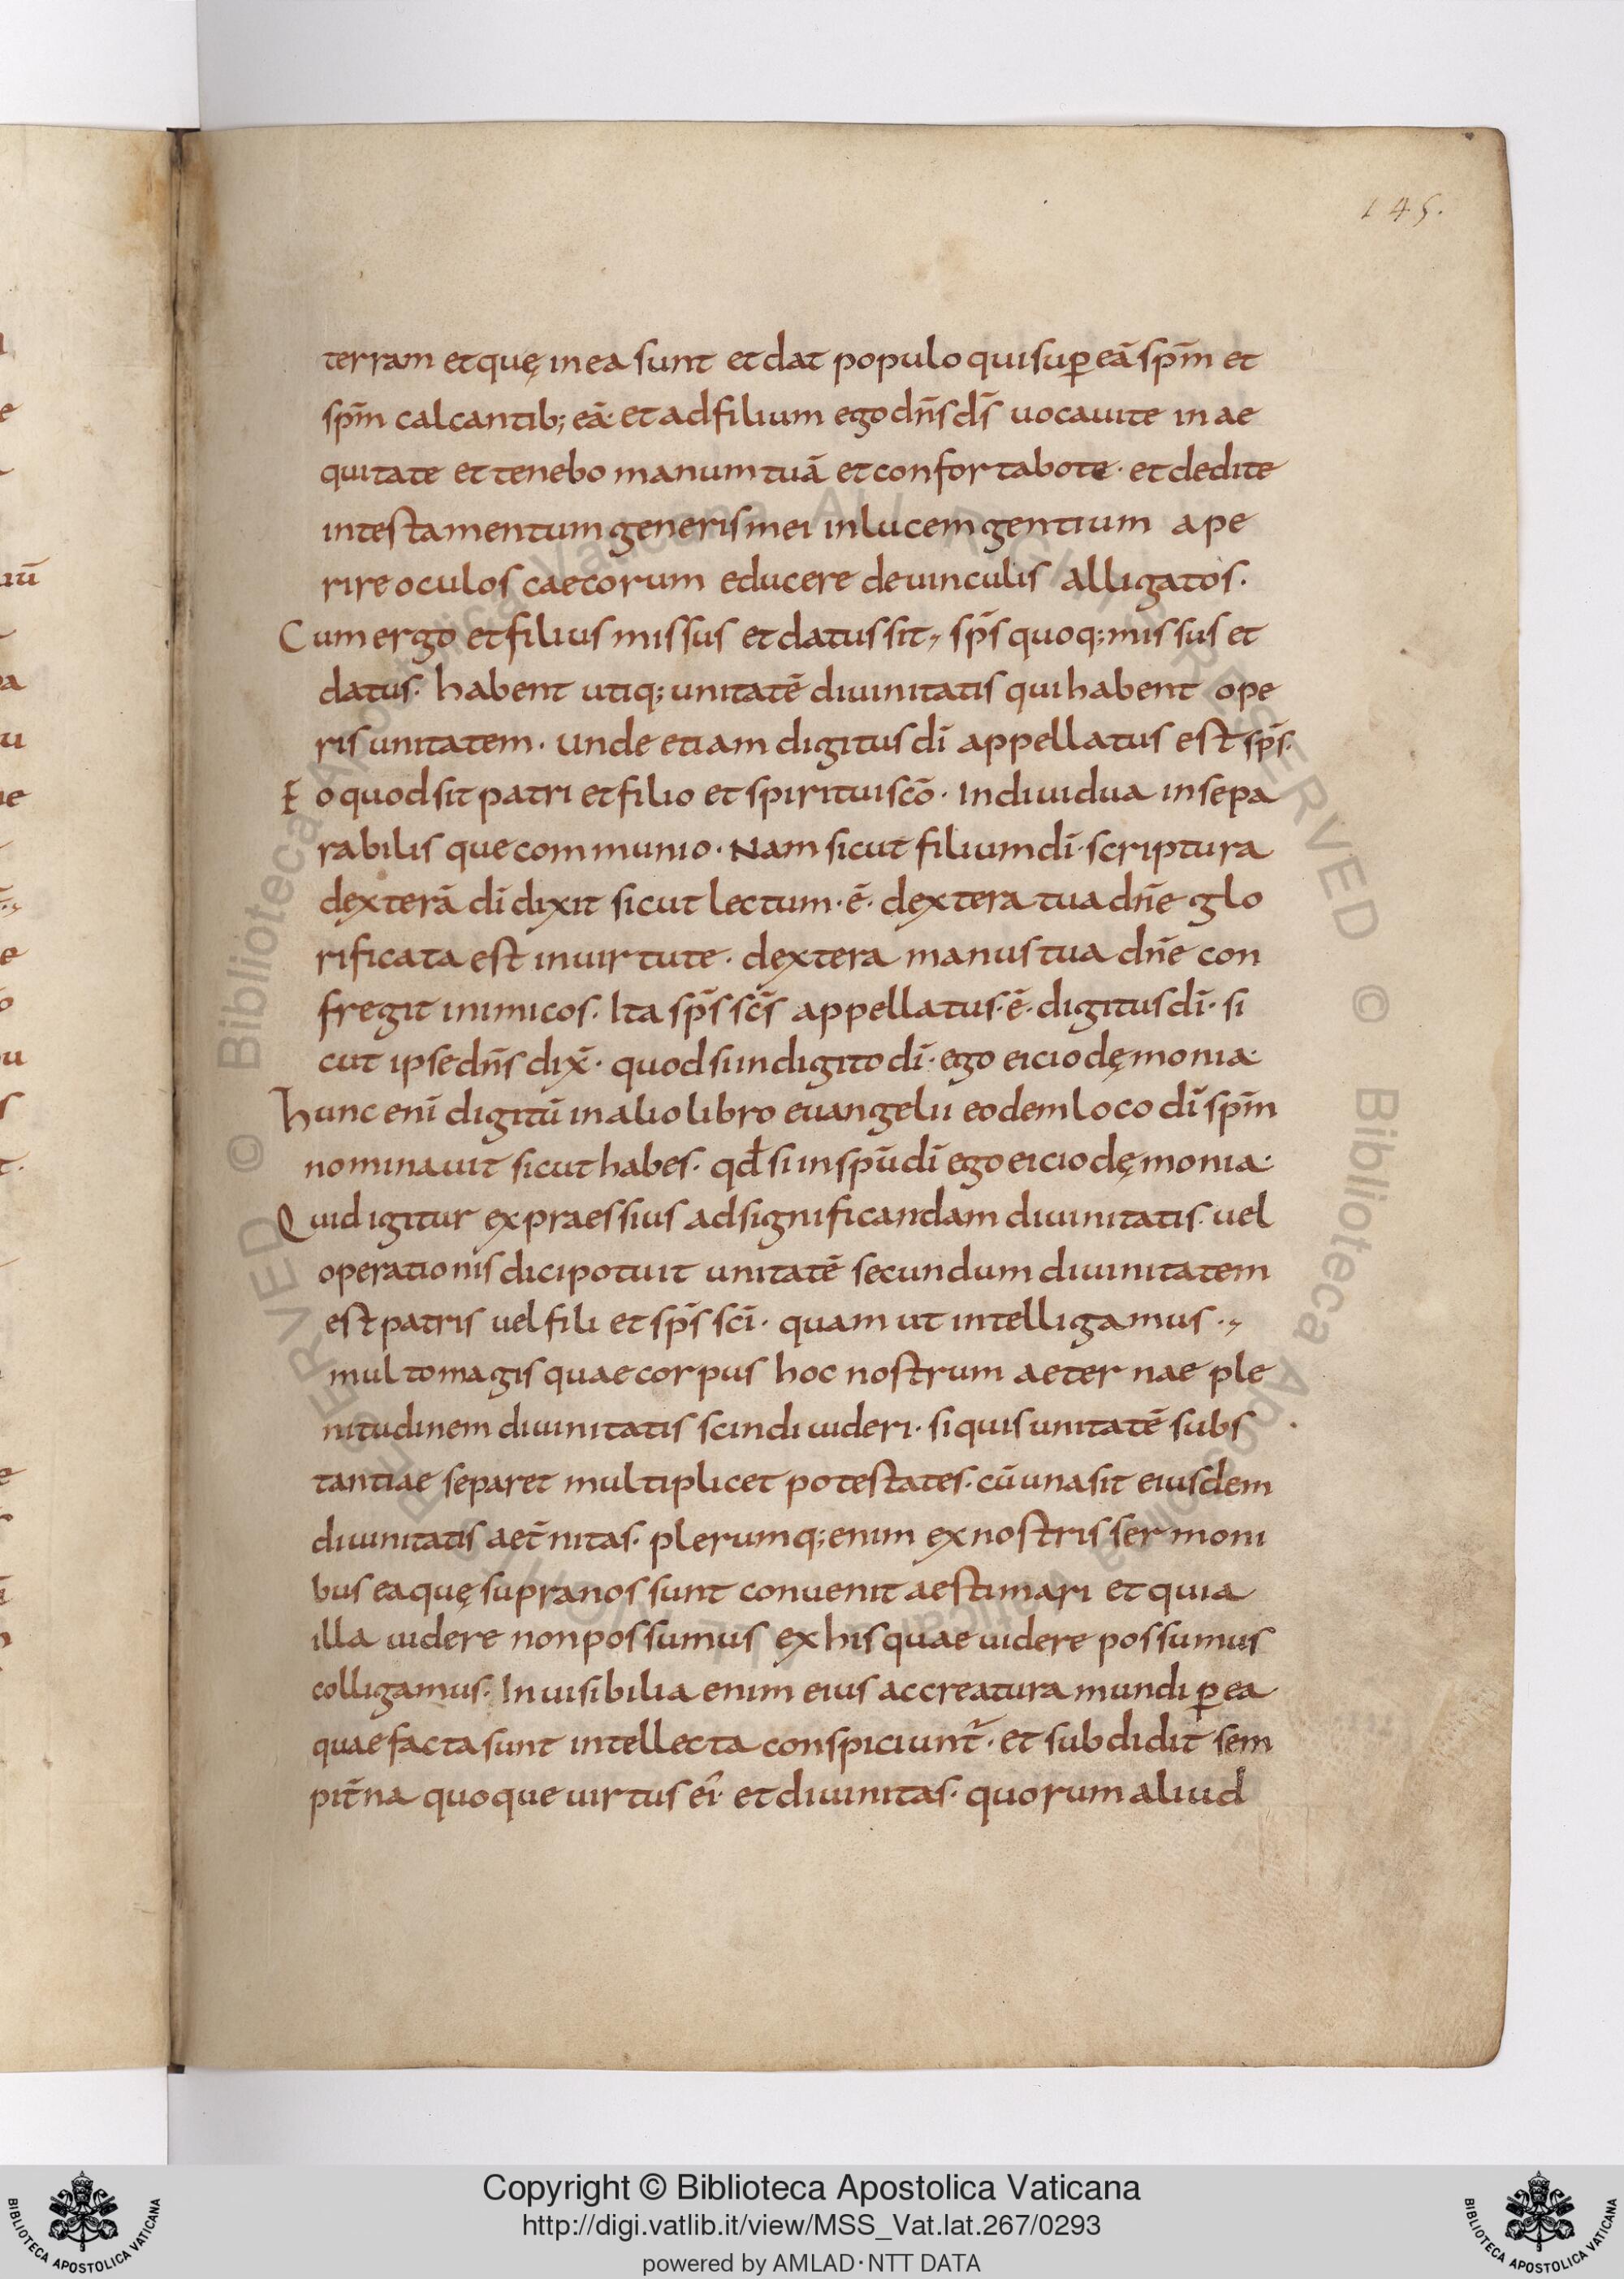 145.
terram et quę in ea sunt et dat populo qui sup̲ eā sp̄m et
sp̄m calcantib; eā· et ad filium ego dn̄s ds̄ uocaui te in ae
quitate et tenebo manum tuā et confortabo te· et dedi te
in testamentum generis mei in lucem gentium ape
rire oculos caecorum educere de uinculis alligatos·
Cum ergo et filius missus et datus sit, sp̄s quoq; missus et
datus· habent utiq; unitatē diuinitatis qui habent ope
ris unitatem· unde etiam digitus dī appellatus est sp̄s·
Eo quod sit patri et filio et spiritui scō· Indiuidua insepa
rabilis que communio· Nam sicut filium dī· scriptura
dexterā dī dixit sicut lectum·ē· dextera tua dn̄e glo
rificata est in uirtute· dextera manus tua dn̄e con
fregit inimicos· Ita sp̄s scs̄ appellatus·ē· digitus dī· si
cut ipse dn̄s dix̄· quod si in digito dī· ego eicio dęmonia·
hunc enī digitū in alio libro euangelii eodem loco dī sp̄m
nominauit sicut habes· qd̄ si in spū dī ego eicio dęmonia·
Quid igitur expraessius ad significandam diuinitatis· uel
operationis dici potuit unitatē secundum diuinitatem
est patris uel fili et sp̄s scī· quam ut intelligamus·,
multo magis quae corpus hoc nostrum aeternae ple
nitudinem diuinitatis scindi uideri· si quis unitatē subs
tantiae separet multiplicet potestates· cū una sit eiusdem
diuinitatis aet̄nitas· plerumq; enim ex nostris sermoni
bus ea quę supra nos sunt conuenit aestimari et quia
illa uidere non possumus ex his quae uidere possumus
colligamus· Inuisibilia enim eius ac creatura mundi p̲ ea
quae facta sunt intellecta conspiciunt̄· et subdidit sem
pit̄na quoque uirtus eī· et diuinitas· quorum aliud
iū
© Biblioteca Apostolica Vaticana ALL RIGHTS RESERVED © Biblioteca Apostolica Vaticana ALL RIGHTS RESERVED
BIBLIOTECA APOSTOLICA VATICANA
Copyright © Biblioteca Apostolica Vaticana
http://digi.vatlib.it/view/MSS_Vat.lat.267/0293
powered by AMLAD·NTT DATA
BIBLIOTECA APOSTOLICA VATICANA